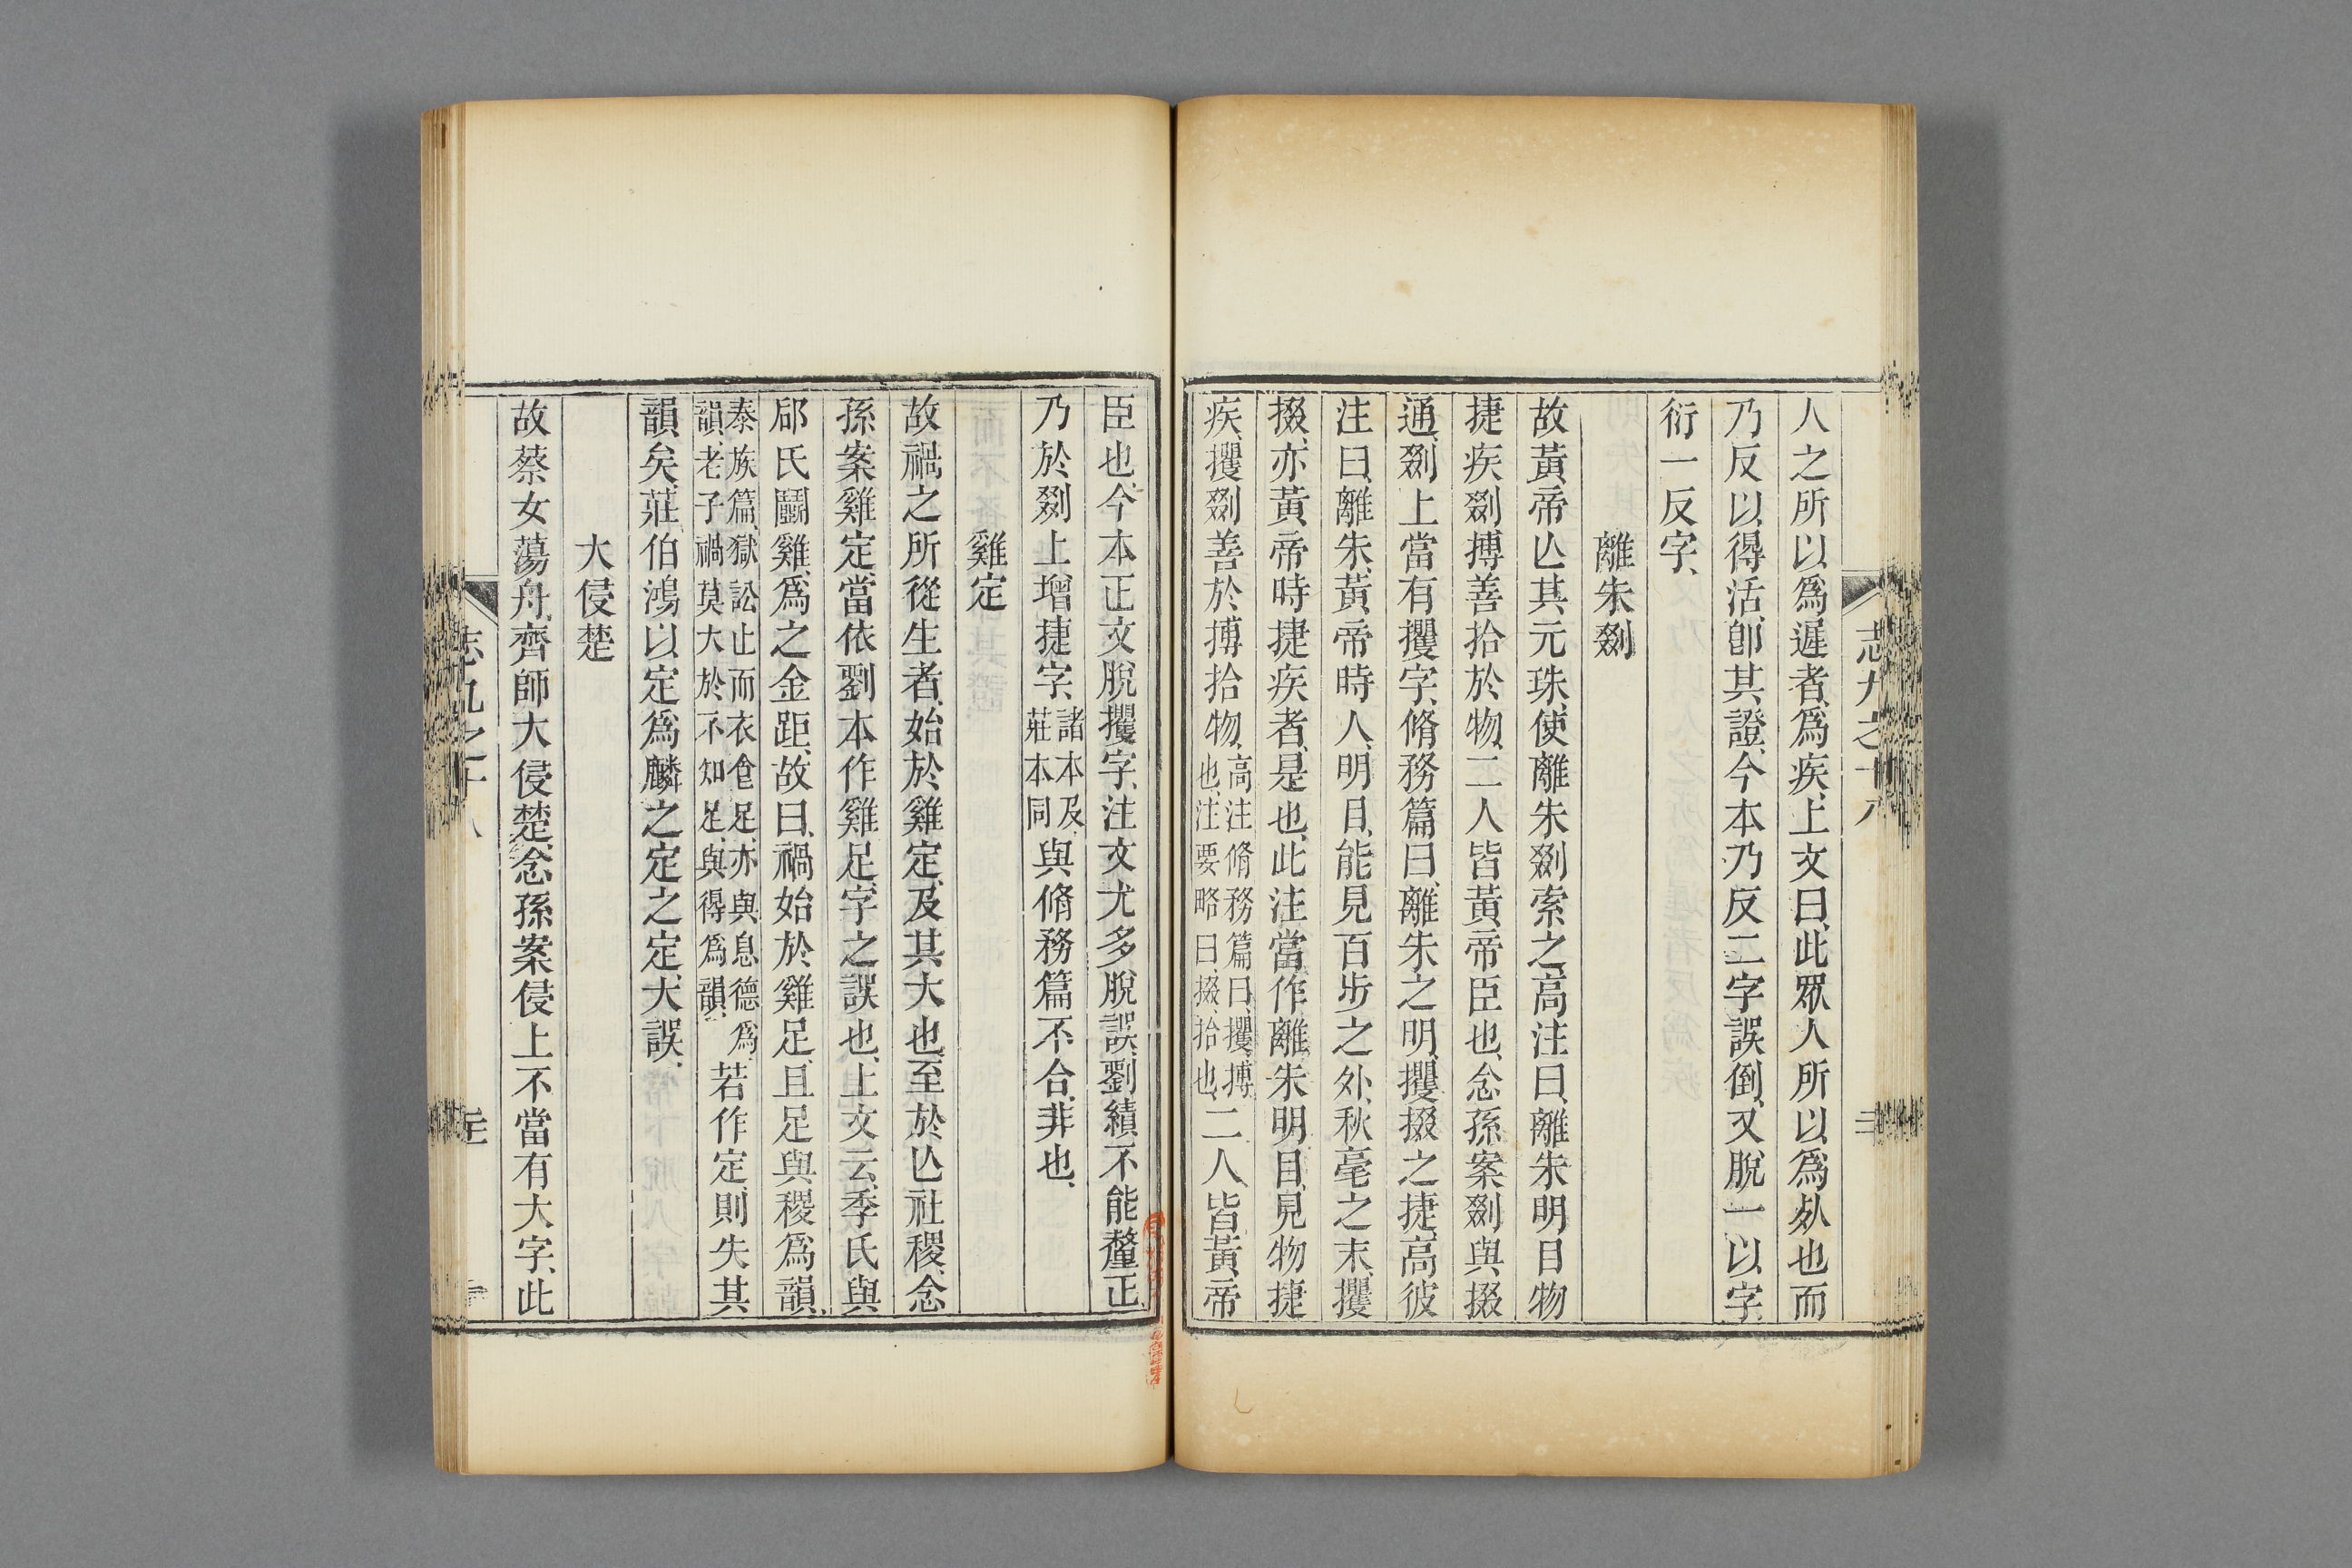 志九之十八
人之所以爲遲者、爲疾、上文曰、此眾人所以爲𣦸也而
乃反以得活、卽其證、今本乃反二字誤倒、又脫一以字、
衍一反字、
離朱剟
故黃帝亾其元珠、使離朱剟索之、高注曰、離朱明目物
捷疾剟搏善拾於物、二人皆黃帝臣也、念孫案剟與掇
通、剟上當有攫字、脩務篇曰、離朱之明、攫掇之捷、高彼
注曰、離朱、黃帝時人、明目、能見百步之外、秋毫之末、攫
掇、亦黃帝時捷疾者、是也、此注當作離朱明目、見物捷
疾、攫剟善於搏拾物、高注脩務篇曰、攫、搏也、注要略曰、掇、拾也、二人皆黃帝
臣也、今本正文脫攫字、注文尤多脫誤、劉績不能釐正、
乃於剟上增捷字、諸本及莊本同、與脩務篇不合、非也、
雞定
故禍之所從生者、始於雞定、及其大也、至於亾社稷、念
孫案雞定、當依劉本作雞足、字之誤也、上文云、季氏與
郈氏鬬雞、爲之金距、故曰、禍始於雞足、且足與稷爲韻、
泰族篇、獄訟止而衣食足、亦與息德爲
韻、老子禍莫大於不知足、與得爲韻、若作定、則失其
韻矣、莊伯鴻以定爲麟之定之定、大誤、
大侵楚
故蔡女蕩舟、齊師大侵楚、念孫案侵上不當有大字、此